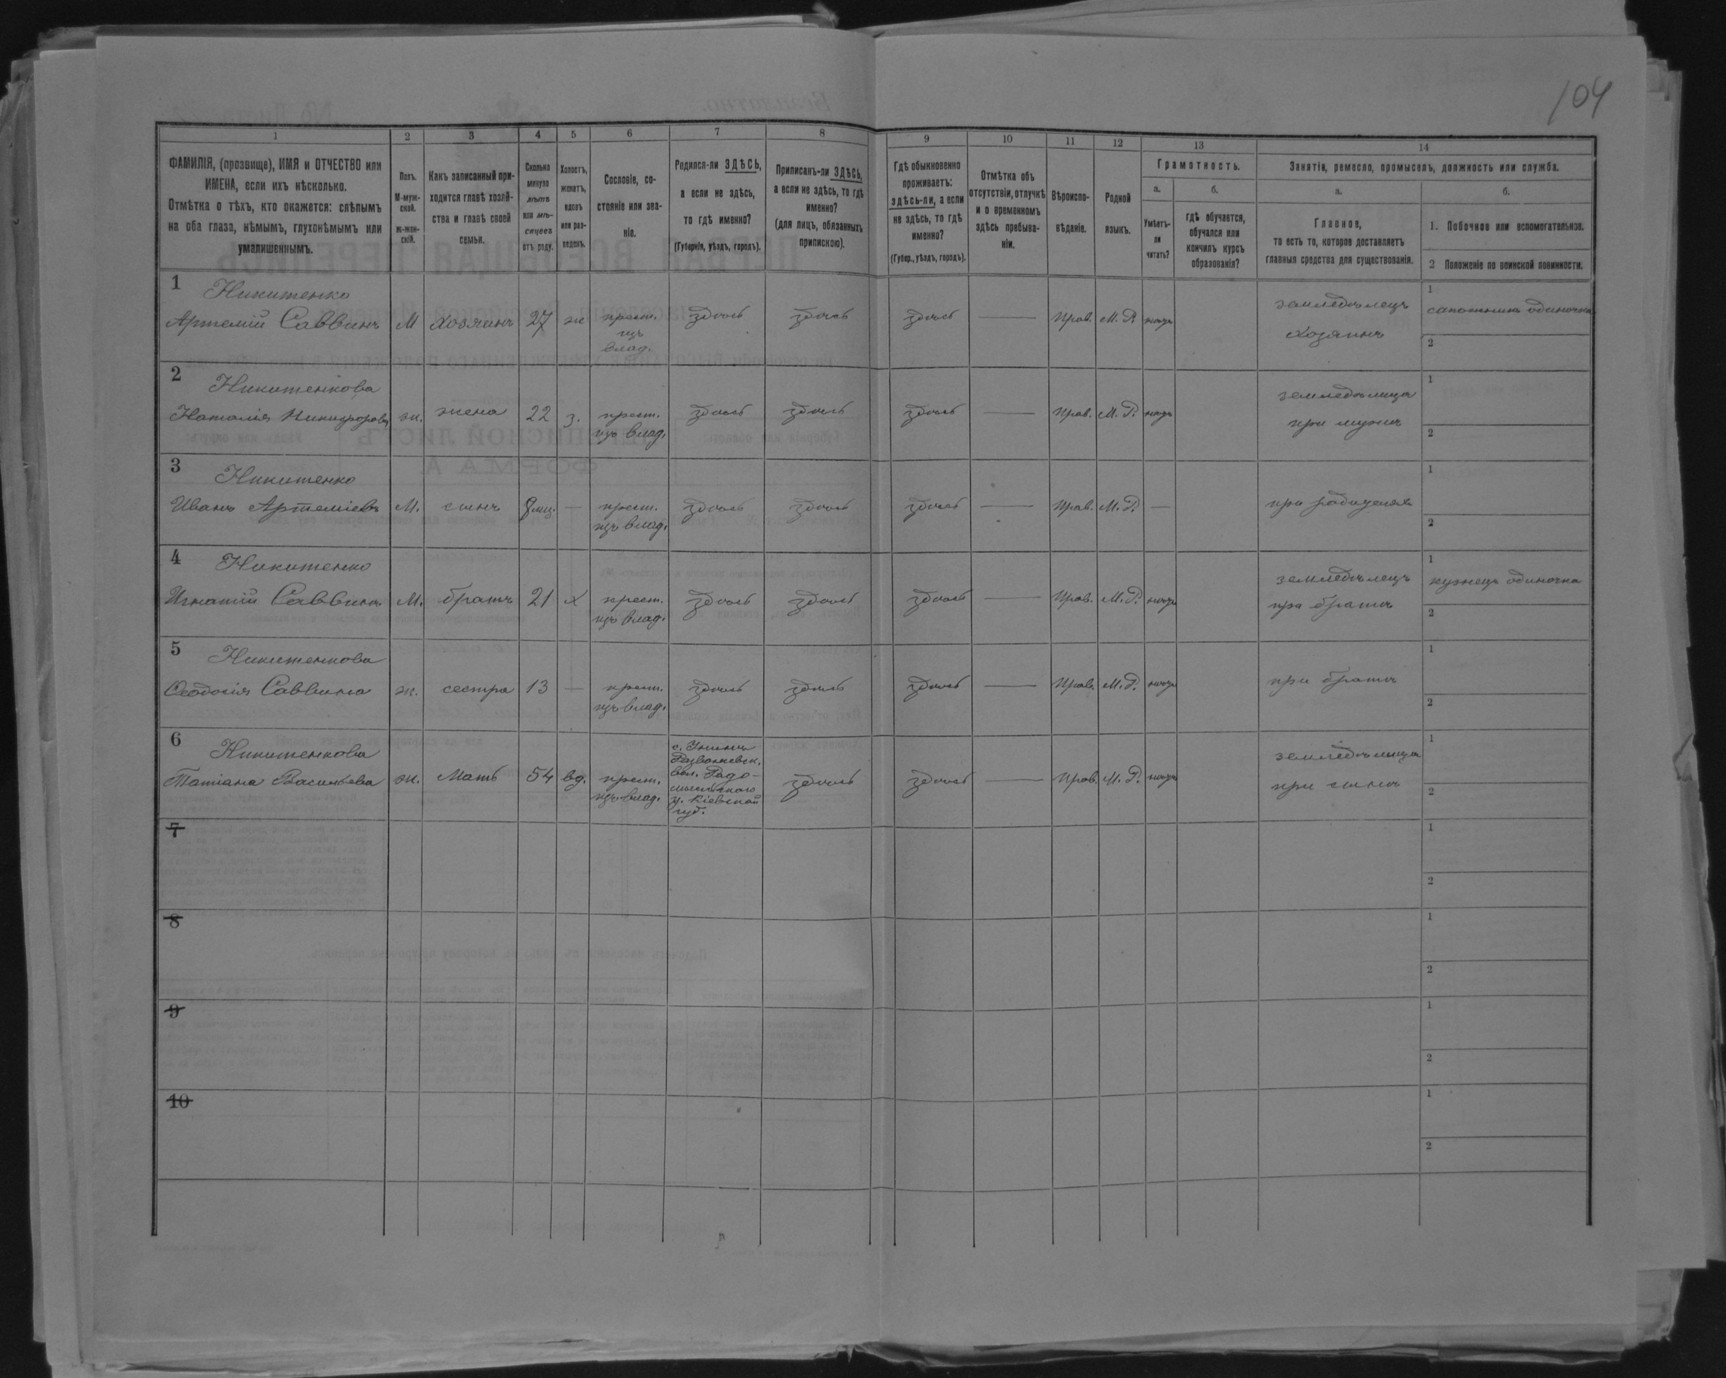 104
1 2 3 4 5 6 7 8 9 10 11 12 13 14
ФАМИЛІЯ, (прозвище), ИМЯ и ОТЧЕСТВО или
ИМЕНА, если ихъ нѣсколько.
Отмѣтка о тѣхъ, кто окажется: слѣпымъ
на оба глаза, нѣмымъ, глухонѣмымъ или
умалишеннымъ.
Полъ.
М-муж-
ской.
ж-жен-
скій.
Какъ записанный при-
ходится главѣ хозяй-
ства и главѣ своей
семьи.
Сколько
минуло
лѣтъ
или мѣ-
сяцевъ
отъ роду.
Холостъ,
женатъ,
вдовъ
или раз-
веденъ.
Сословіе, со-
стояніе или зва-
ніе.
Родился-ли ЗДѢСЬ,
а если не здѣсь,
то гдѣ именно?
(Губернія, уѣздъ, городъ).
Приписанъ-ли ЗДѢСЬ,
а если не здѣсь, то гдѣ
именно?
(для лицъ, обязанныхъ
припискою).
Гдѣ обыкновенно
проживаетъ:
здѣсь-ли, а если
не здѣсь, то гдѣ
именно?
(Губер., уѣздъ, городъ).
Отмѣтка объ
отсутствіи, отлучкѣ
и о временномъ
здѣсь пребыва-
ніи.
Вѣроиспо-
вѣданіе.
Родной
языкъ.
Грамотность.
а.
Умѣетъ-
ли
читать?
б.
гдѣ обучается,
обучался или
кончилъ курсъ
образованія?
Занятіе, ремесло, промыселъ, должность или служба.
а.
Главное,
то есть то, которое доставляетъ
главныя средства для существованія.
б.
1. Побочное или вспомогательное.
2 Положеніе по воинской повинности.
1
Никитенко
Артемій Саввинъ М хозяинъ 27 ж крест. здѣсь здѣсь здѣсь — Прав. М. Р.
изъ
влад.
земледѣлецъ
хозяинъ
1
сапожникъ одиночка
2
2
Никитенкова
Наталія Никифорова ж. жена 22 з. крест. здѣсь здѣсь здѣсь — Прав. М. Р.
изъ влад.
земледѣлица
при мужѣ
1
2
3
Никитенко
Иванъ Артеміевъ М. сынъ — крест. здѣсь здѣсь здѣсь — Прав. М. Р. —
изъ влад.
при родителяхъ
1
2
4
Никитенко
Игнатій Саввинъ М. братъ 21 х крест. здѣсь здѣсь здѣсь — Прав. М. Р.
изъ влад.
земледѣлецъ
при братѣ
1
кузнецъ одиночка
2
5
Никитенкова
Ѳеодосія Саввина ж. сестра 13 — крест. здѣсь здѣсь здѣсь — Прав. М. Р.
изъ влад.
при братѣ
1
2
6
Никитенкова
Татіана Васильева ж. Мать 54 вд. крест. здѣсь здѣсь — Прав. М. Р.
изъ влад.
вол. Радо-
мысльскаго
у. Кіевской
губ.
земледѣлица
при сынѣ
1
2
7
1
2
8
1
2
9
1
2
10
1
2